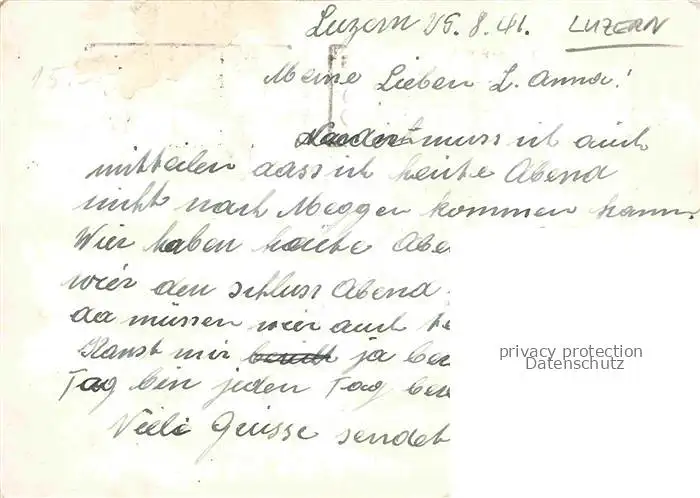 Luzern 25.8.41. LUZERN
15.
Meine Lieben L. Anna!
muss ich auch
mitteilen dass ich heute Abend
nicht nach Meggen kommen kann.
Wier haben heute Abe
wier den schluss Abend
da müssen wier auch
Kanst mir ja
Tag bin jeden Tag
Viele Grüsse sendet
privacy protection
Datenschutz